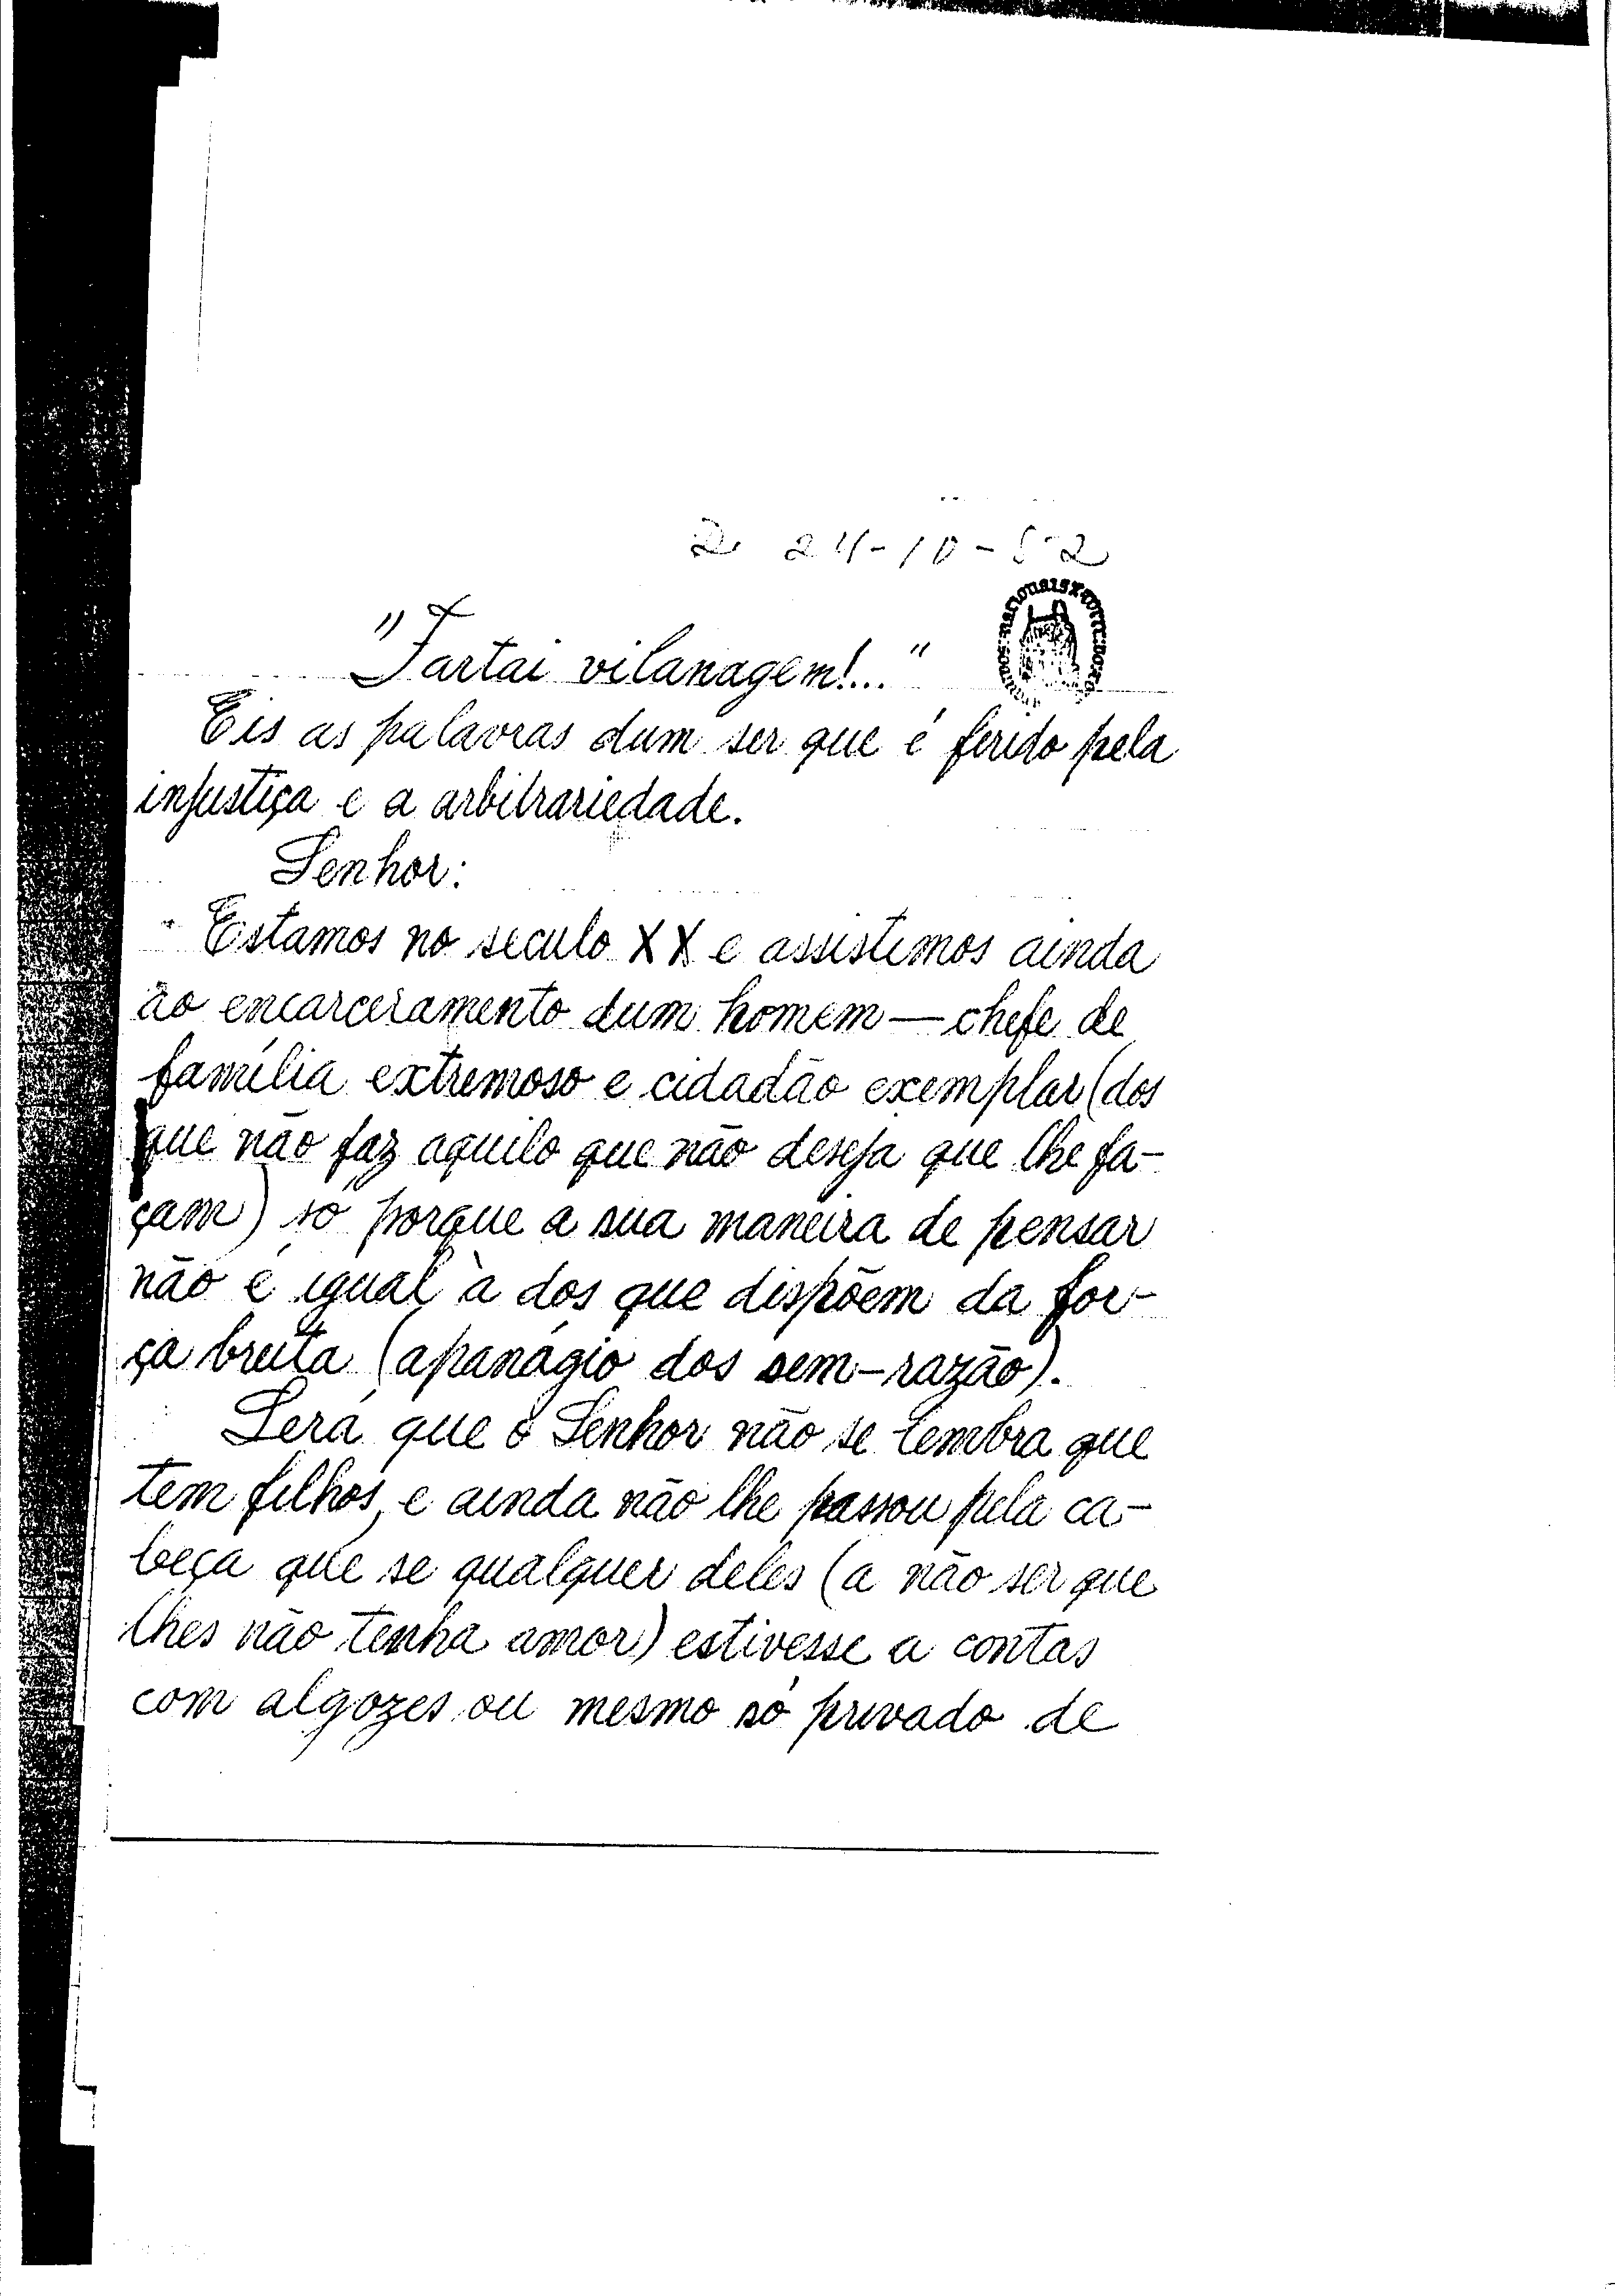 2 24-10-52
"Fartai vilanagem!..."
Eis as palavras dum ser que é ferido pela
injustiça e a arbitrariedade.
Senhor:
Estamos no seculo XX e assistimos ainda
ão encarceramento dum homem — chefe de
família extremoso e cidadão exemplar (dos
que não faz aquilo que não deseja que lhe fa-
çam) só porque a sua maneira de pensar
não é igual à dos que dispõem da for-
ça bruta (apanágio dos sem-razão).
Será que o Senhor não se lembra que
tem filhos, e ainda não lhe passou pela ca-
beça que se qualquer deles (a não ser que
lhes não tenha amor) estivesse a contas
com algozes ou mesmo só privado de